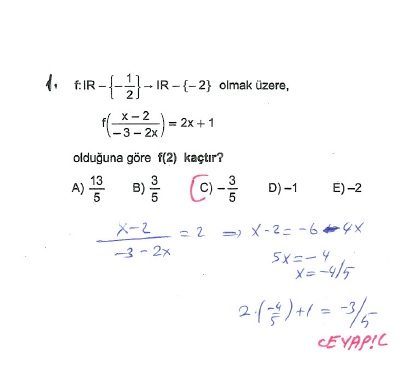 1. f: IR – {-1/2} → IR – {-2} olmak üzere,
f((x – 2)/(-3 – 2x)) = 2x + 1
olduğuna göre f(2) kaçtır?
A) 13/5 B) 3/5 C) -3/5 D) -1 E) -2
(x-2)/(-3-2x) = 2 ⇒ x-2 = -6-4x
5x = -4
x = -4/5
2·(-4/5)+1 = -3/5
CEVAP!C